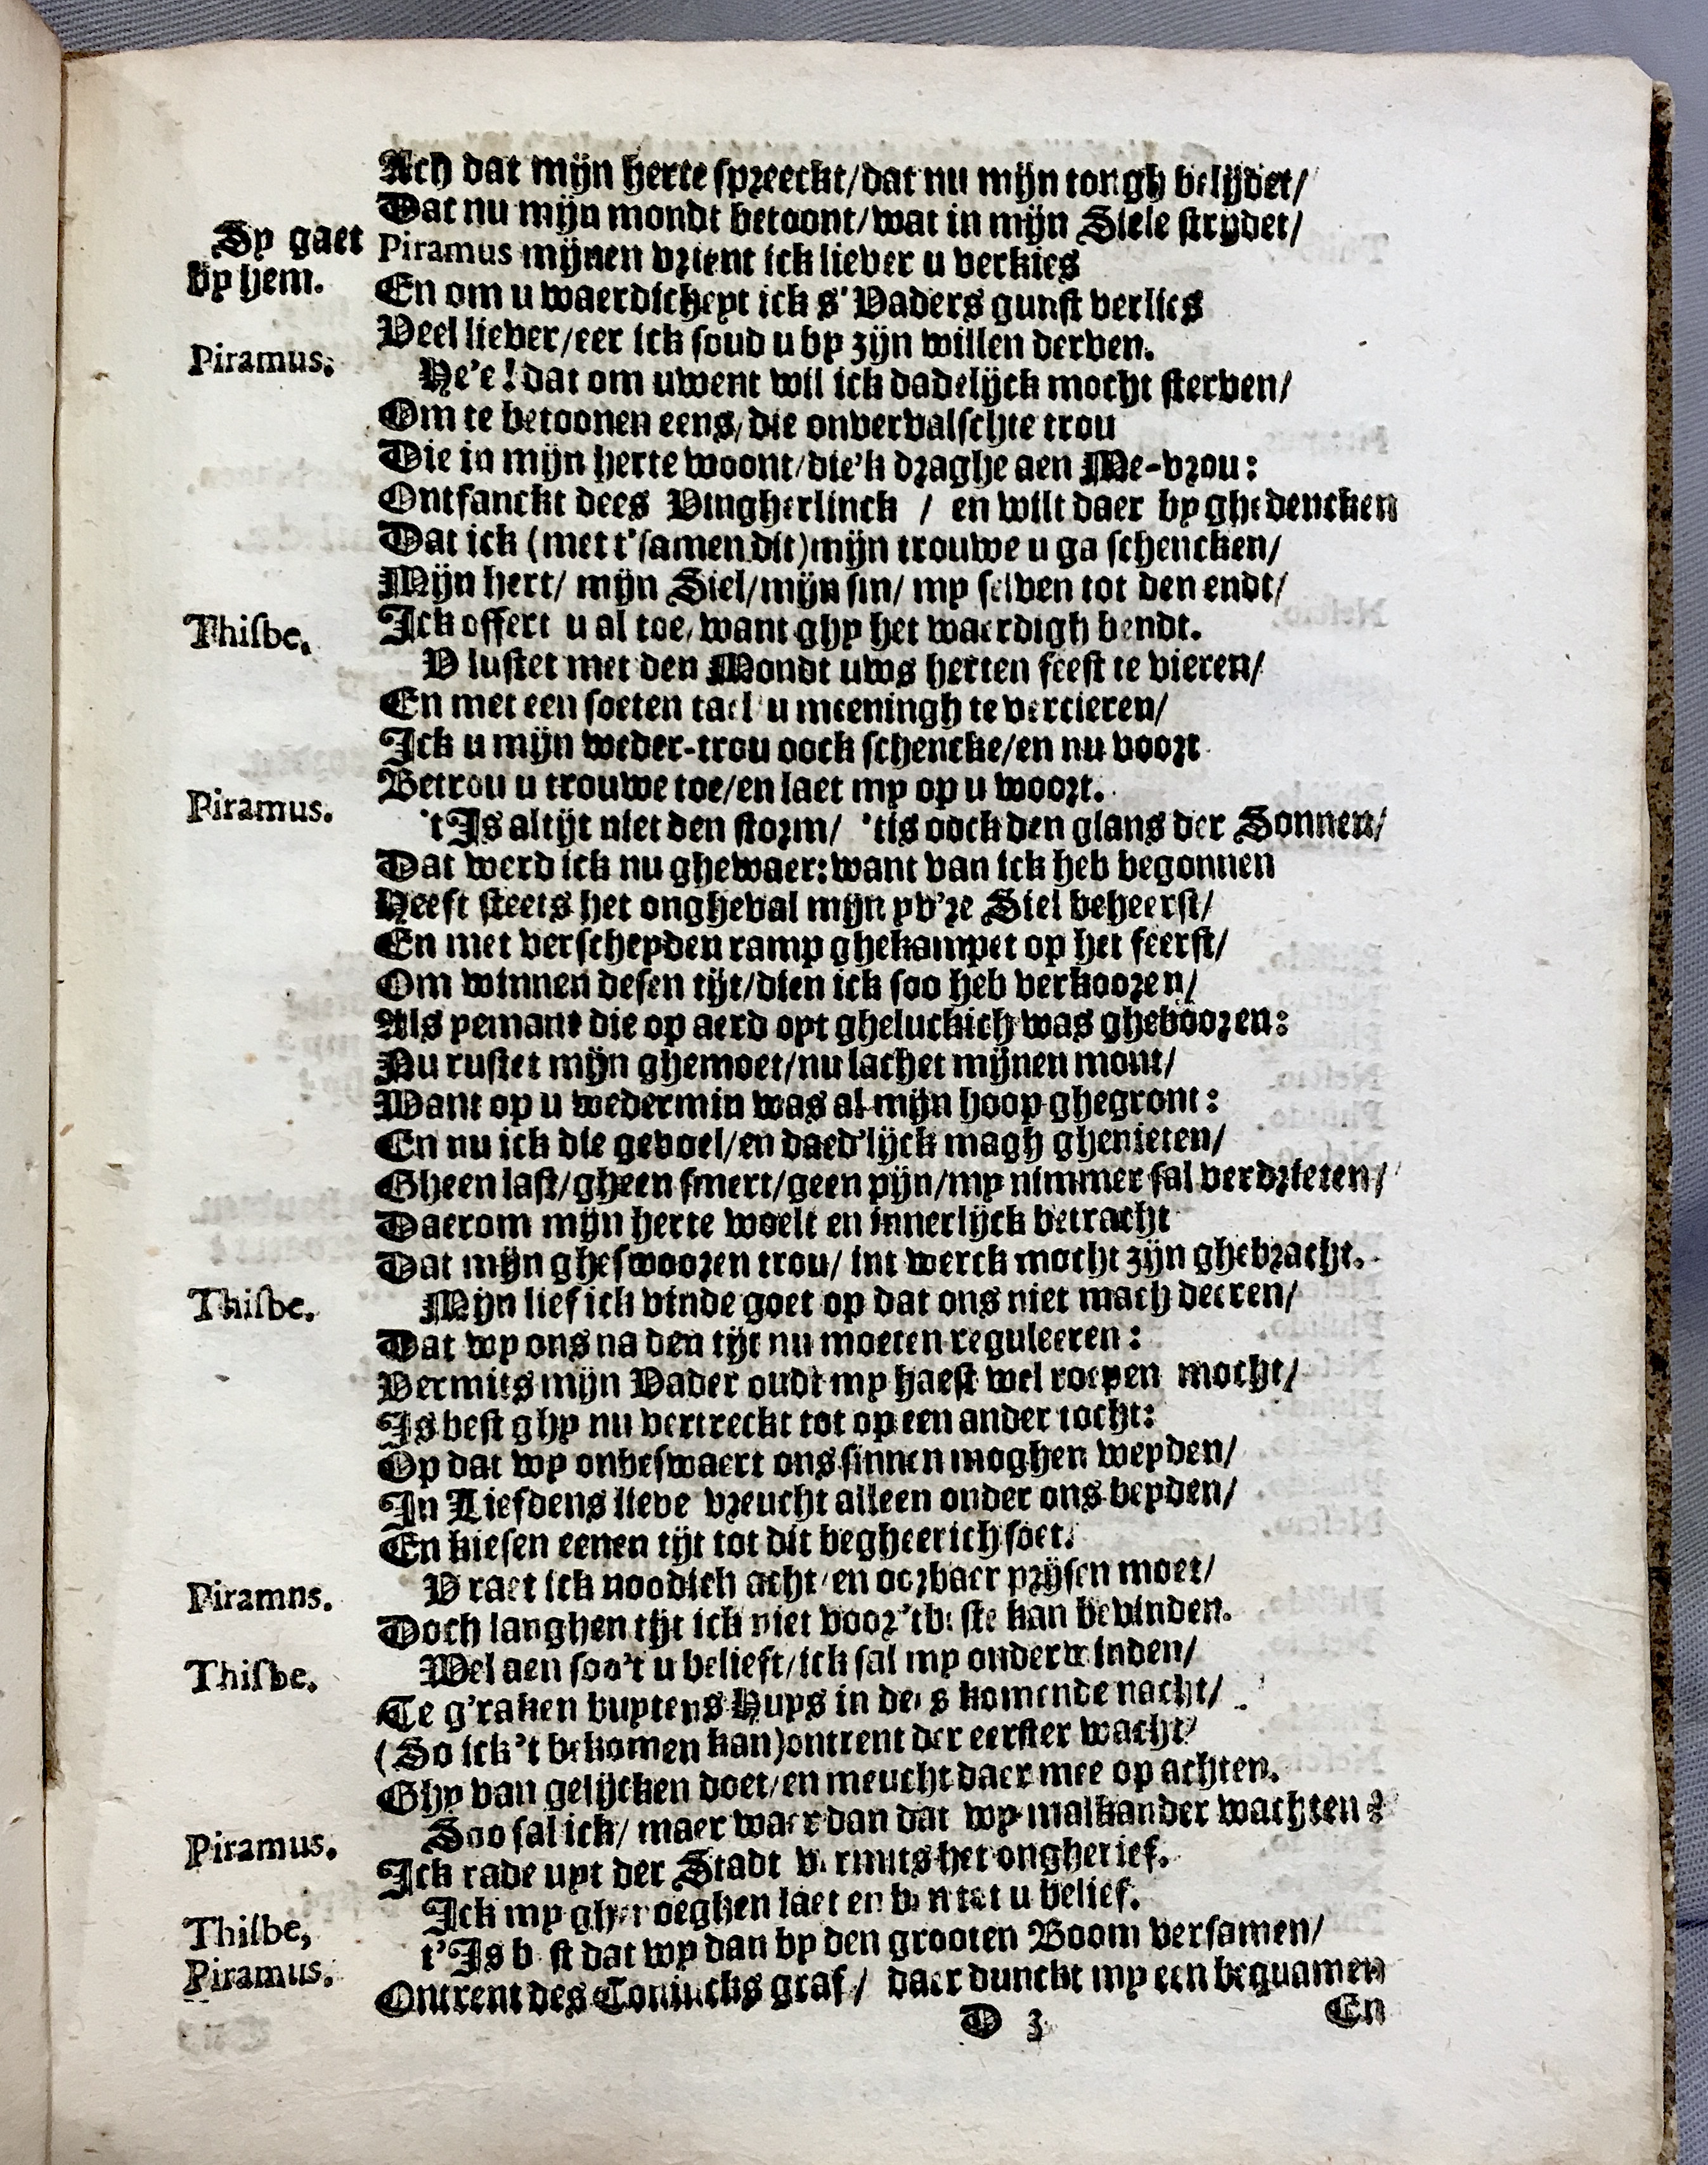 Ach dat mijn herte spreeckt/dat nu mijn tongh belijdet/
Dat nu mijn mondt betoont/wat in mijn Siele strijdet/
Sy gaet Piramus mijnen vrient ick liever u verkies
by hem. En om u waerdicheyt ick s'Vaders gunst verlies
Veel liever/eer ick soud u by zijn willen derven.
Piramus. He'e! dat om uwent wil ick dadelijck mocht sterven/
Om te betoonen eens/die onvervalschte trou
Die in mijn herte woont/die'k draghe aen Me-vrou:
Ontfanckt dees Vingherlinck / en wilt daer by ghedencken
Dat ick (met t'samen dit) mijn trouwe u ga schencken/
Mijn hert/ mijn Siel/mijn sin/ my selven tot den endt/
Ick offert u al toe, want ghy het waerdigh bendt.
Thisbe. V lustet met den Mondt uws herten feest te vieren/
En met een soeten tael u meeningh te vercieren/
Ick u mijn weder-trou oock schencke/en nu voort
Betrou u trouwe toe/en laet my op u woort.
Piramus. 't Is altijt niet den storm/ 'tis oock den glans der Sonnen/
Dat werd ick nu ghewaer: want van ick heb begonnen
Heeft steets het ongheval mijn yv're Siel beheerst/
En met verscheyden ramp ghekampet op het feerst/
Om winnen desen tijt/dien ick soo heb verkooren/
Als yemant die op aerd oyt gheluckich was ghebooren:
Nu rustet mijn ghemoet/nu lachet mijnen mont/
Want op u wedermin was al mijn hoop ghegront:
En nu ick die gevoel/en daed'lijck magh ghenieten/
Gheen last/gheen smert/geen pijn/my nimmer sal verdrieten/
Daerom mijn herte woelt en innerlijck betracht
Dat mijn ghesworen trou/ int werck mocht zijn ghebracht.
Thisbe. Mijn lief ick vinde goet op dat ons niet mach deeren/
Dat wy ons na den tijt nu moeten reguleeren:
Vermits mijn Vader oudt my haest wel roepen mocht/
Is best ghy nu vertreckt tot op een ander tocht:
Op dat wy onbeswaert ons sinnen moghen weyden/
In Liefdens lieve vreucht alleen onder ons beyden/
En kiesen eenen tijt tot dit begheerich soet.
Piramns. V raet ick noodich acht/en oorbaer prijsen moet/
Doch langhen tijt ick niet voor 'tbeste kan bevinden.
Thisbe. Wel aen soo't u belieft/ick sal my onderwinden/
Te g'raken buytens Huys in dees komende nacht/
(So ick 't bekomen kan) ontrent der eerster wacht/
Ghy van gelijcken doet/en meucht daer mee op achten.
Piramus. Soo sal ick/ maer waer dan dat wy malkander wachten?
Ick rade uyt der Stadt vermits het ongherief.
Thisbe, Ick my ghenoeghen laet en ben tot u belief.
Piramus. t'Is best dat wy dan by den grooten Boom versamen/
Ontrent des Conincks graf/ daer dunckt my een bequamen
D 3 En